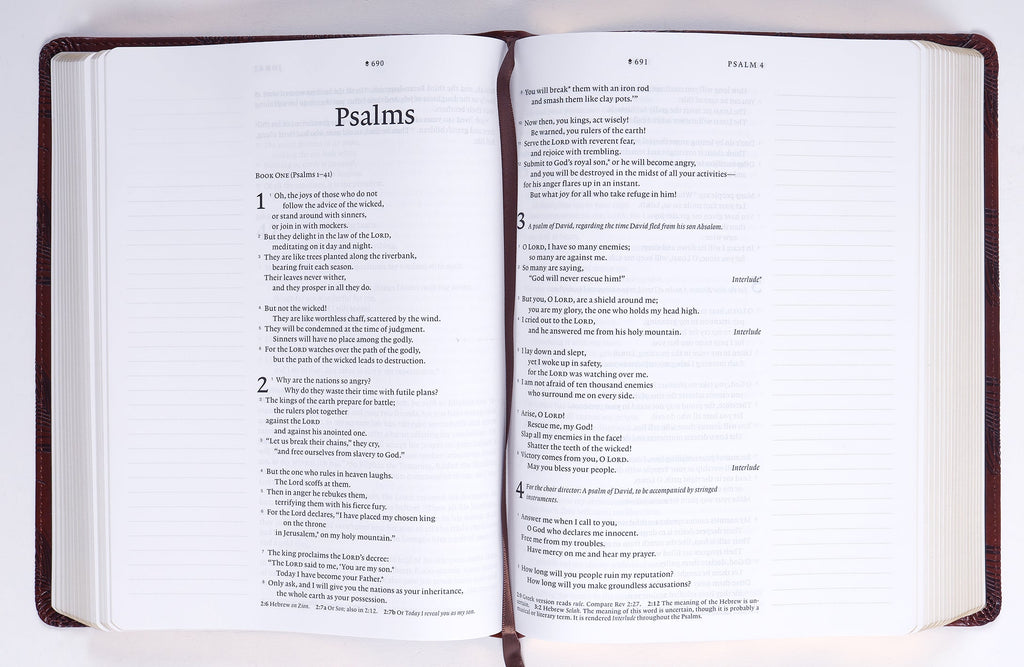 690
Psalms
BOOK ONE (Psalms 1–41)
1 1 Oh, the joys of those who do not
follow the advice of the wicked,
or stand around with sinners,
or join in with mockers.
2 But they delight in the law of the LORD,
meditating on it day and night.
3 They are like trees planted along the riverbank,
bearing fruit each season.
Their leaves never wither,
and they prosper in all they do.
4 But not the wicked!
They are like worthless chaff, scattered by the wind.
5 They will be condemned at the time of judgment.
Sinners will have no place among the godly.
6 For the LORD watches over the path of the godly,
but the path of the wicked leads to destruction.
2 1 Why are the nations so angry?
Why do they waste their time with futile plans?
2 The kings of the earth prepare for battle;
the rulers plot together
against the LORD
and against his anointed one.
3 “Let us break their chains,” they cry,
“and free ourselves from slavery to God.”
4 But the one who rules in heaven laughs.
The Lord scoffs at them.
5 Then in anger he rebukes them,
terrifying them with his fierce fury.
6 For the Lord declares, “I have placed my chosen king
on the throne
in Jerusalem,* on my holy mountain.”
7 The king proclaims the LORD’s decree:
“The LORD said to me, ‘You are my son.*
Today I have become your Father.*
8 Only ask, and I will give you the nations as your inheritance,
the whole earth as your possession.
2:6 Hebrew on Zion. 2:7a Or Son; also in 2:12. 2:7b Or Today I reveal you as my son.
691 PSALM 4
9 You will break* them with an iron rod
and smash them like clay pots.’”
10 Now then, you kings, act wisely!
Be warned, you rulers of the earth!
11 Serve the LORD with reverent fear,
and rejoice with trembling.
12 Submit to God’s royal son,* or he will become angry,
and you will be destroyed in the midst of all your activities—
for his anger flares up in an instant.
But what joy for all who take refuge in him!
3 A psalm of David, regarding the time David fled from his son Absalom.
1 O LORD, I have so many enemies;
so many are against me.
2 So many are saying,
“God will never rescue him!” Interlude*
3 But you, O LORD, are a shield around me;
you are my glory, the one who holds my head high.
4 I cried out to the LORD,
and he answered me from his holy mountain. Interlude
5 I lay down and slept,
yet I woke up in safety,
for the LORD was watching over me.
6 I am not afraid of ten thousand enemies
who surround me on every side.
7 Arise, O LORD!
Rescue me, my God!
Slap all my enemies in the face!
Shatter the teeth of the wicked!
8 Victory comes from you, O LORD.
May you bless your people. Interlude
4 For the choir director: A psalm of David, to be accompanied by stringed
instruments.
1 Answer me when I call to you,
O God who declares me innocent.
Free me from my troubles.
Have mercy on me and hear my prayer.
2 How long will you people ruin my reputation?
How long will you make groundless accusations?
2:9 Greek version reads rule. Compare Rev 2:27. 2:12 The meaning of the Hebrew is un-
certain. 3:2 Hebrew Selah. The meaning of this word is uncertain, though it is probably a
musical or literary term. It is rendered Interlude throughout the Psalms.